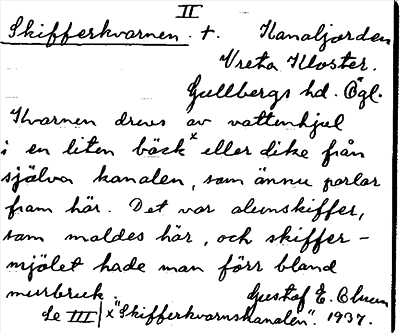 II
Skifferkvarnen. †. Kanaljorden
Vreta Kloster.
Gullbergs hd. Ögl.
Kvarnen drevs av vattenhjul
i en liten bäckˣ eller dike från
själva kanalen, som ännu porlar
fram här. Det var alunskiffer,
som maldes här, och skiffer-
mjölet hade man förr bland
murbruk. Gustaf E. Olsson
Se III / x "Skifferkvarnskanalen". 1937.